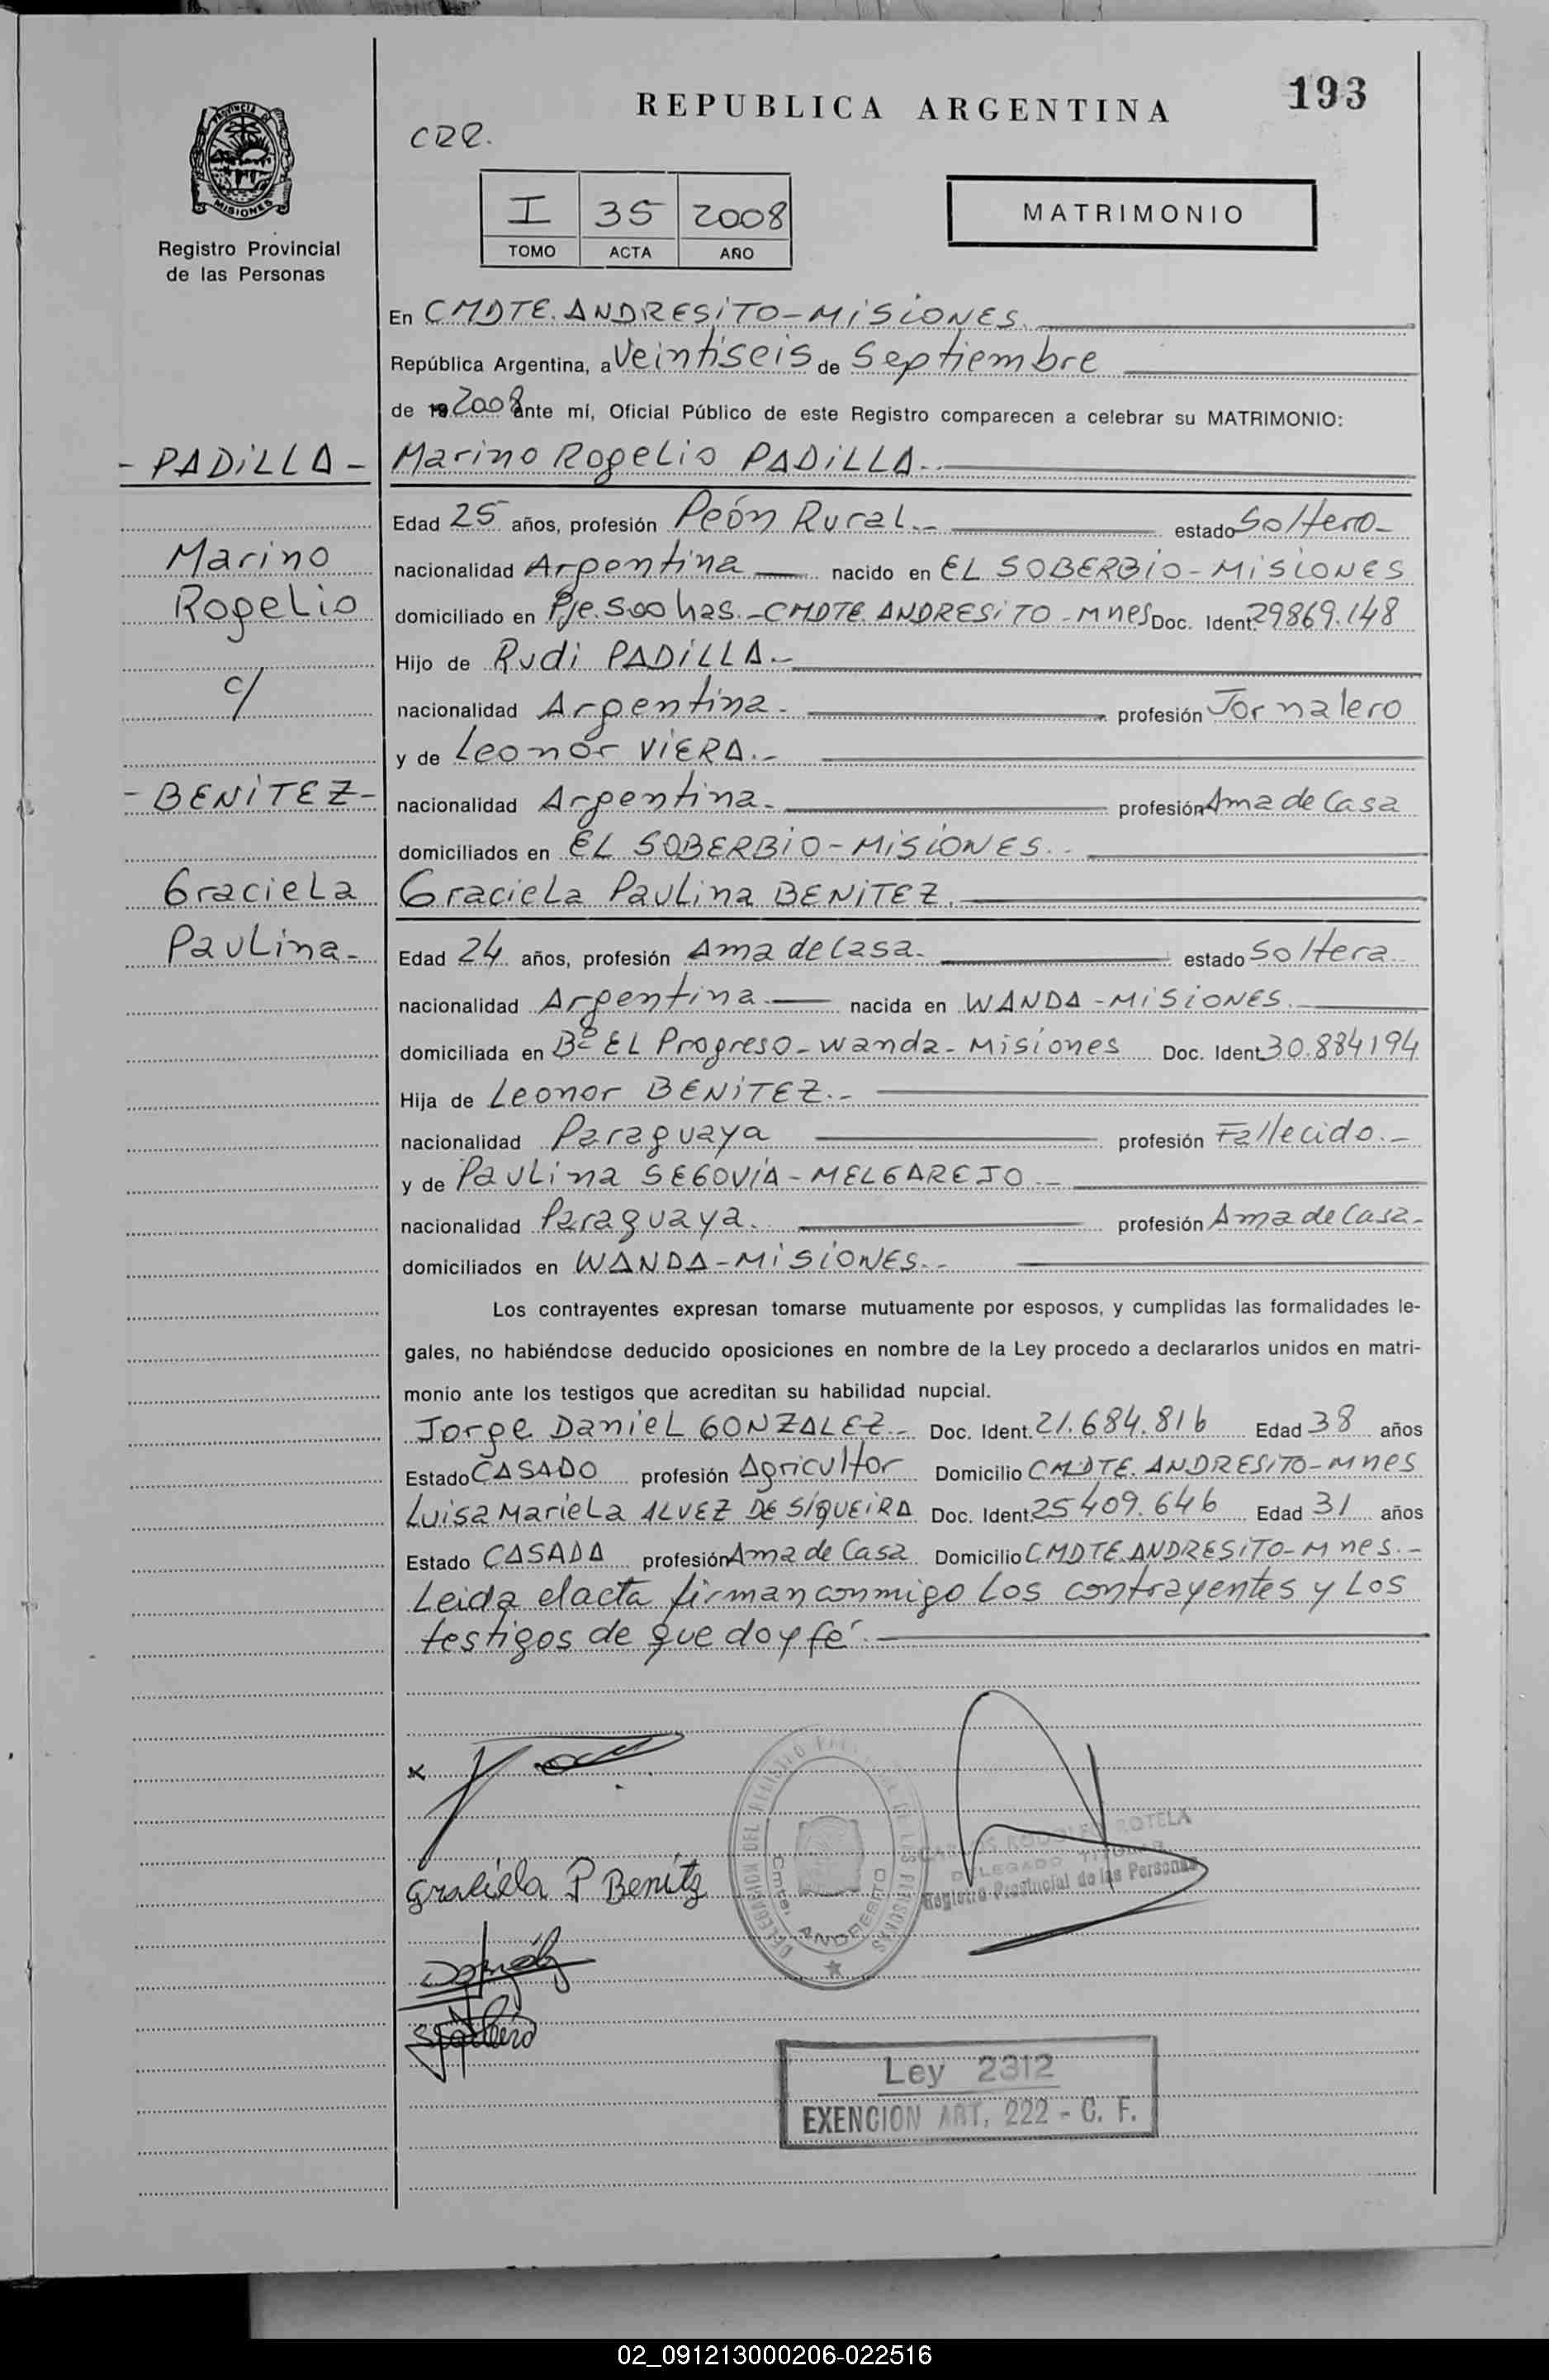 193
REPUBLICA ARGENTINA
CRR.
PROVINCIA DE MISIONES
Registro Provincial
de las Personas
I 35 2008
TOMO ACTA AÑO
MATRIMONIO
En CMDTE. ANDRESITO - MISIONES.
República Argentina, a Veintiseis de Septiembre
de 19 2008 ante mí, Oficial Público de este Registro comparecen a celebrar su MATRIMONIO:
- PADILLA -
Marino Rogelio PADILLA.-
Edad 25 años, profesión Peón Rural.- estado Soltero-
Marino
nacionalidad Argentina nacido en EL SOBERBIO - MISIONES
Rogelio
domiciliado en Pje. 500 has. - CMDTE. ANDRESITO - Mnes Doc. Ident. 29869.148
Hijo de Rudi PADILLA.-
c/
nacionalidad Argentina - profesión Jornalero
y de Leonor VIERA.-
- BENITEZ -
nacionalidad Argentina - profesión Ama de Casa
domiciliados en EL SOBERBIO - MISIONES.-
Graciela
Graciela Paulina BENITEZ.
Paulina -
Edad 24 años, profesión Ama de Casa. estado Soltera
nacionalidad Argentina. nacida en WANDA - MISIONES.
domiciliada en Bº EL Progreso - Wanda - Misiones Doc. Ident. 30.884194
Hija de Leonor BENITEZ.-
nacionalidad Paraguaya profesión Fallecido.-
y de Paulina SEGOVIA - MELGAREJO.-
nacionalidad Paraguaya. profesión Ama de Casa-
domiciliados en WANDA - MISIONES.-
Los contrayentes expresan tomarse mutuamente por esposos, y cumplidas las formalidades le-
gales, no habiéndose deducido oposiciones en nombre de la Ley procedo a declararlos unidos en matri-
monio ante los testigos que acreditan su habilidad nupcial.
Jorge Daniel GONZALEZ.- Doc. Ident. 21.684.816 Edad 38 años
Estado CASADO profesión Agricultor Domicilio CMDTE. ANDRESITO - Mnes
Luisa Mariela ALVEZ DE SIQUEIRA Doc. Ident. 25409.646 Edad 31 años
Estado CASADA profesión Ama de Casa Domicilio CMDTE. ANDRESITO - Mnes.-
Leida el acta firman conmigo Los contrayentes y Los
testigos de que doy fé.
x
DELEGACION DEL REGISTRO PROVINCIAL DE LAS PERSONAS
Cmte. ANDRESITO
CARLOS RODOLFO ROTELA
DELEGADO TITULAR
Registro Provincial de las Personas
Graciela P Benitz
Ley 2312
EXENCION ART. 222 - C. F.
02_091213000206-022516